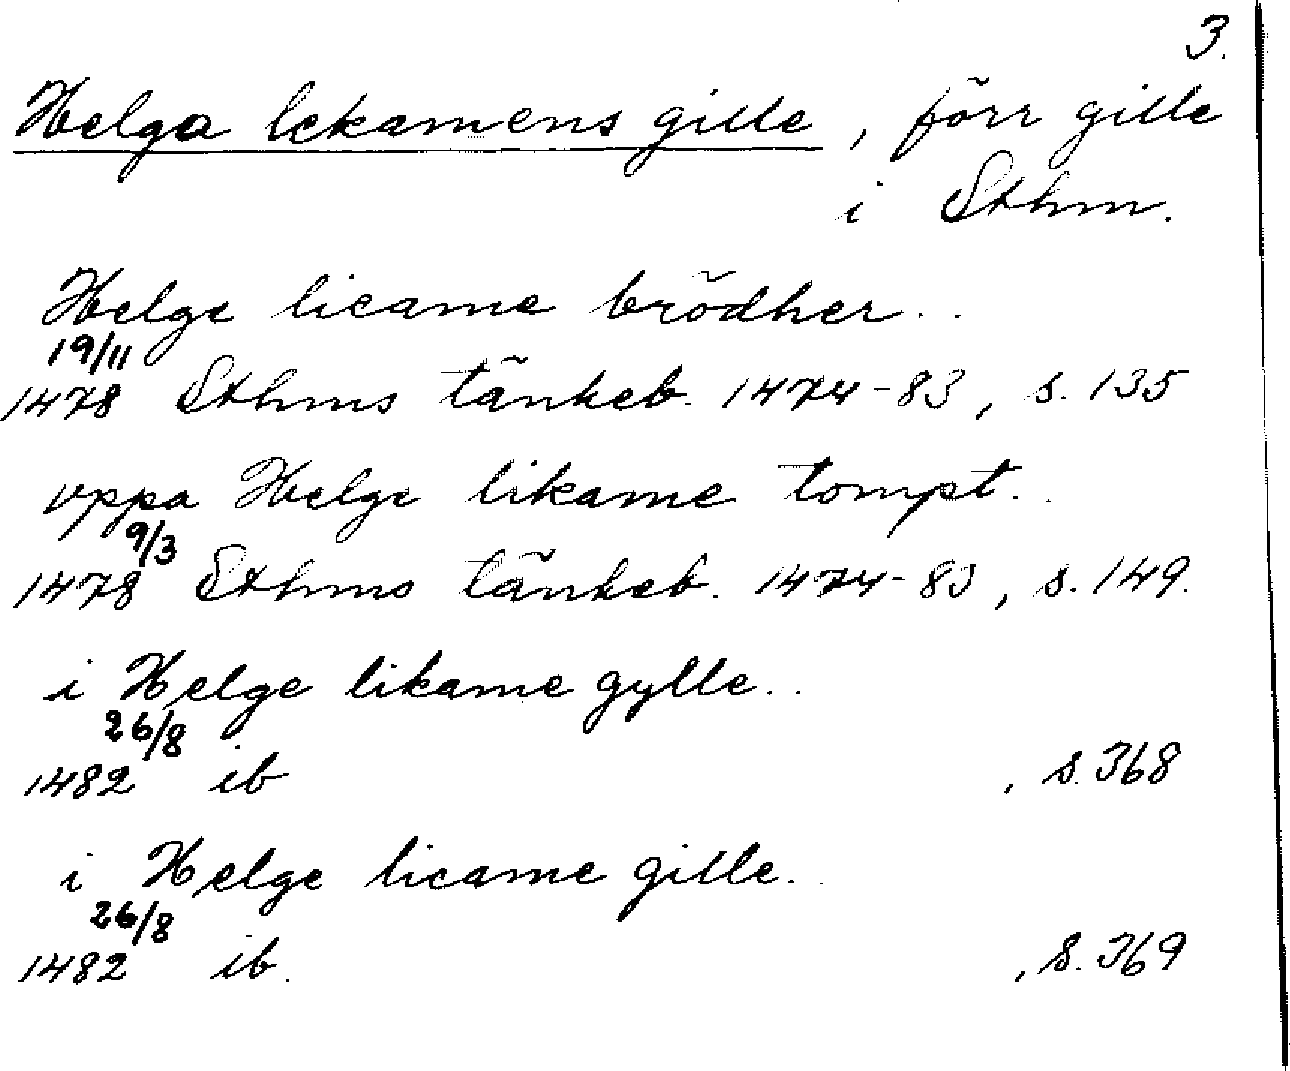 3.
Helga lekamens gille, förr gille
i Sthm.
Helge licame brödher..
19/11
1478 Sthms tänkeb. 1474-83, s. 135
vppa Helge likame tompt..
9/3
1478 Sthms tänkeb. 1474-83, s. 149.
i Helge likame gylle..
26/8
1482 ib , s. 368
i Helge licame gille..
26/8
1482 ib. , s. 369